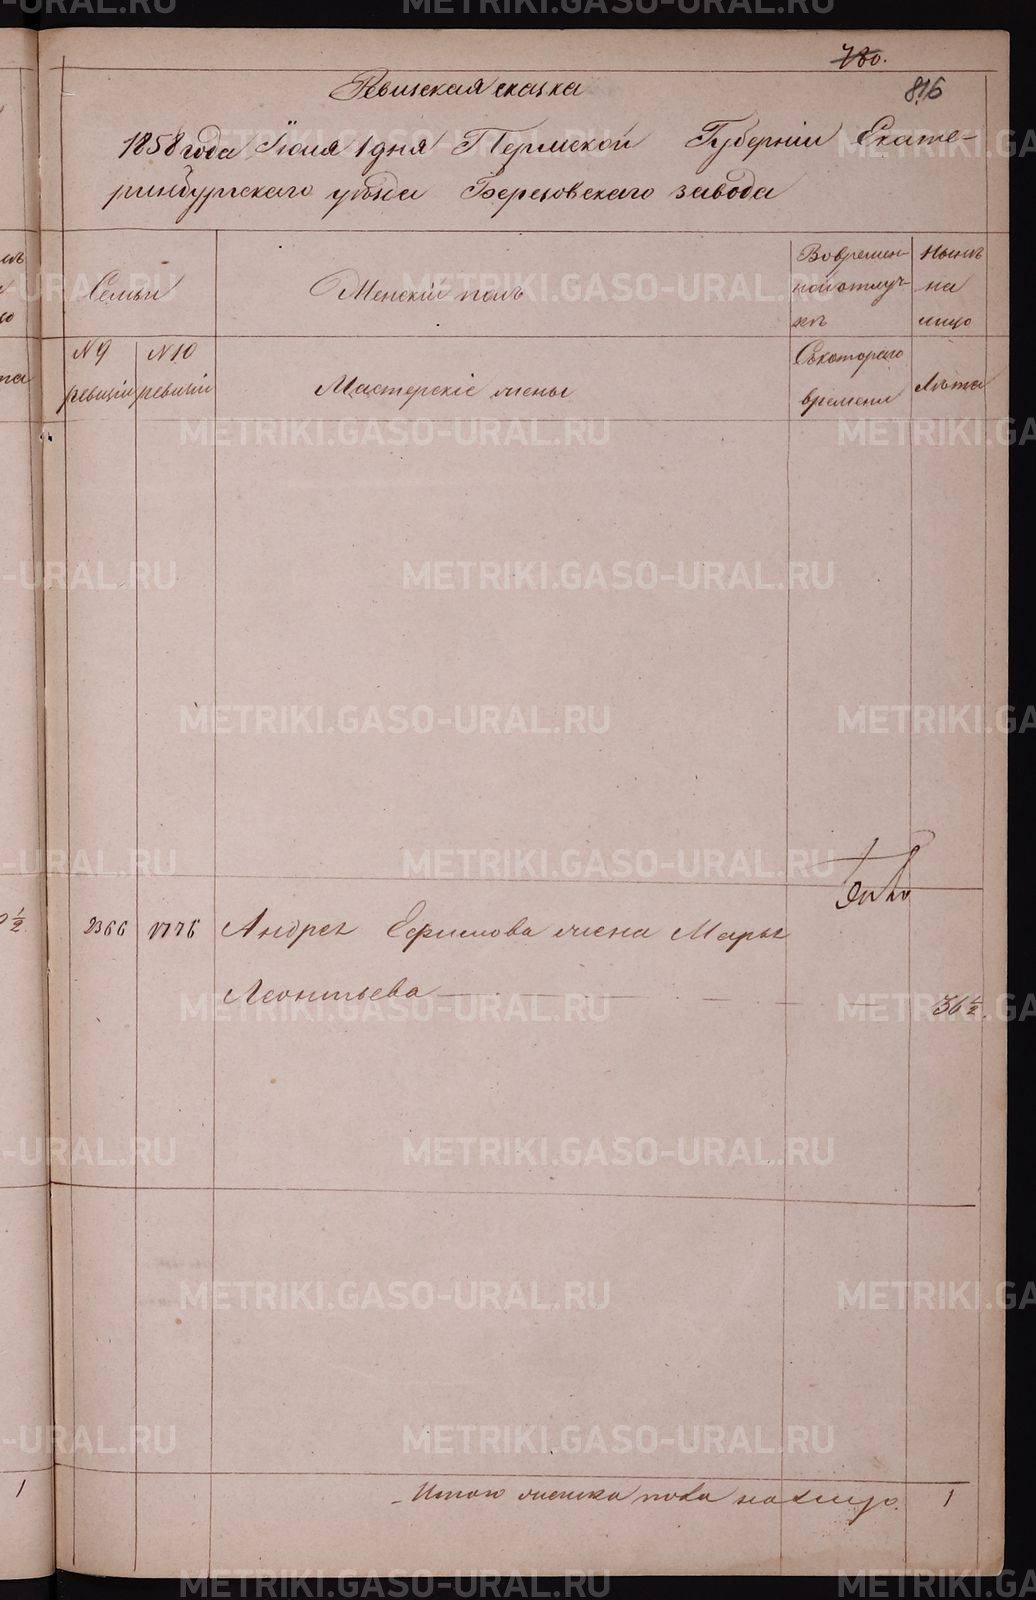 780.
816
Ревизская сказка
1858 года Іюня 1 дня Пермской Губерніи Екате-
ринбургскаго уѣзда Березовскаго завода
Семьи
Женскій полъ
Во времен-
ной отлуч-
кѣ
Нынѣ
на
лицо
№ 9
ревизіи
№ 10
ревизіи
Мастерскіе жены
Съ котораго
времени
Лѣта
2366 1776 Андрея Ефимова жена Марья
Леонтьева 36 ½.
Итого женска пола на лицо. 1
½
1
METRIKI.GASO-URAL.RU